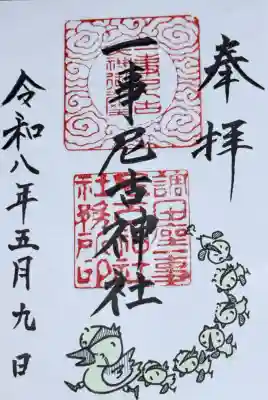 奉拝
一事尼古神社
令和八年五月九日